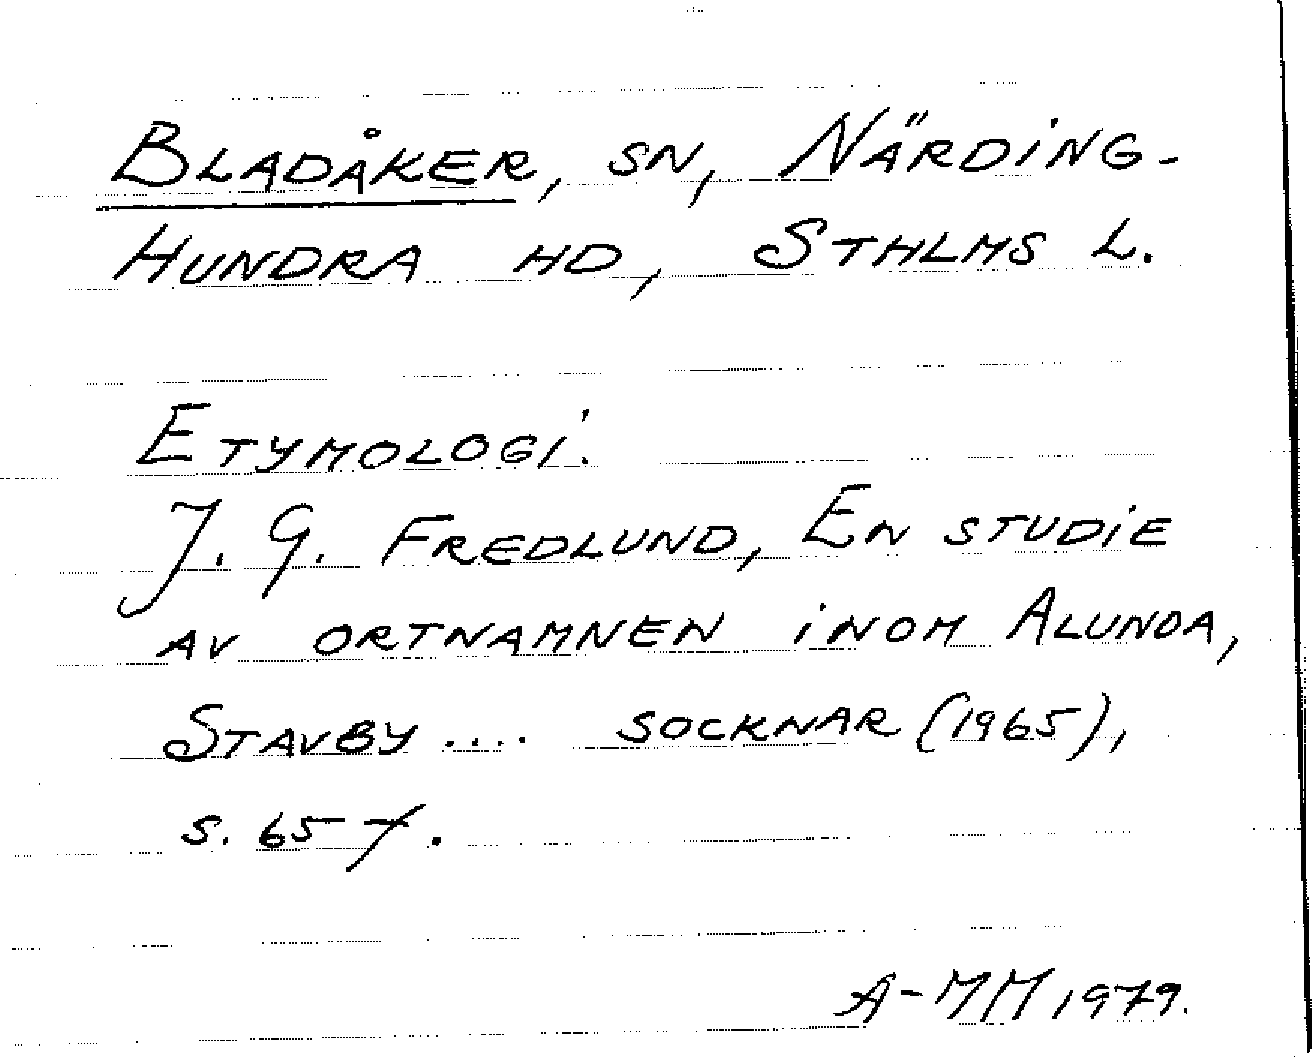 BLADÅKER, SN, NÄRDING-
HUNDRA HD, STHLMS L.
ETYMOLOGI.
J. G. FREDLUND, EN STUDIE
AV ORTNAMNEN INOM ALUNDA,
STAVBY .... SOCKNAR (1965),
S. 65 f.
A-MM 1979.